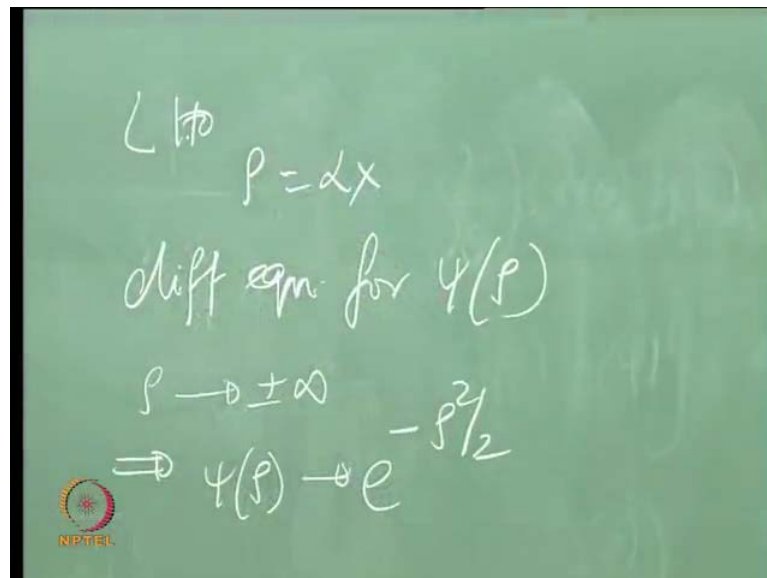 L H O
ρ = αx
diff eqn. for ψ(ρ)
ρ → ± ∞
⇒ ψ(ρ) → e^{-ρ²/2}
NPTEL